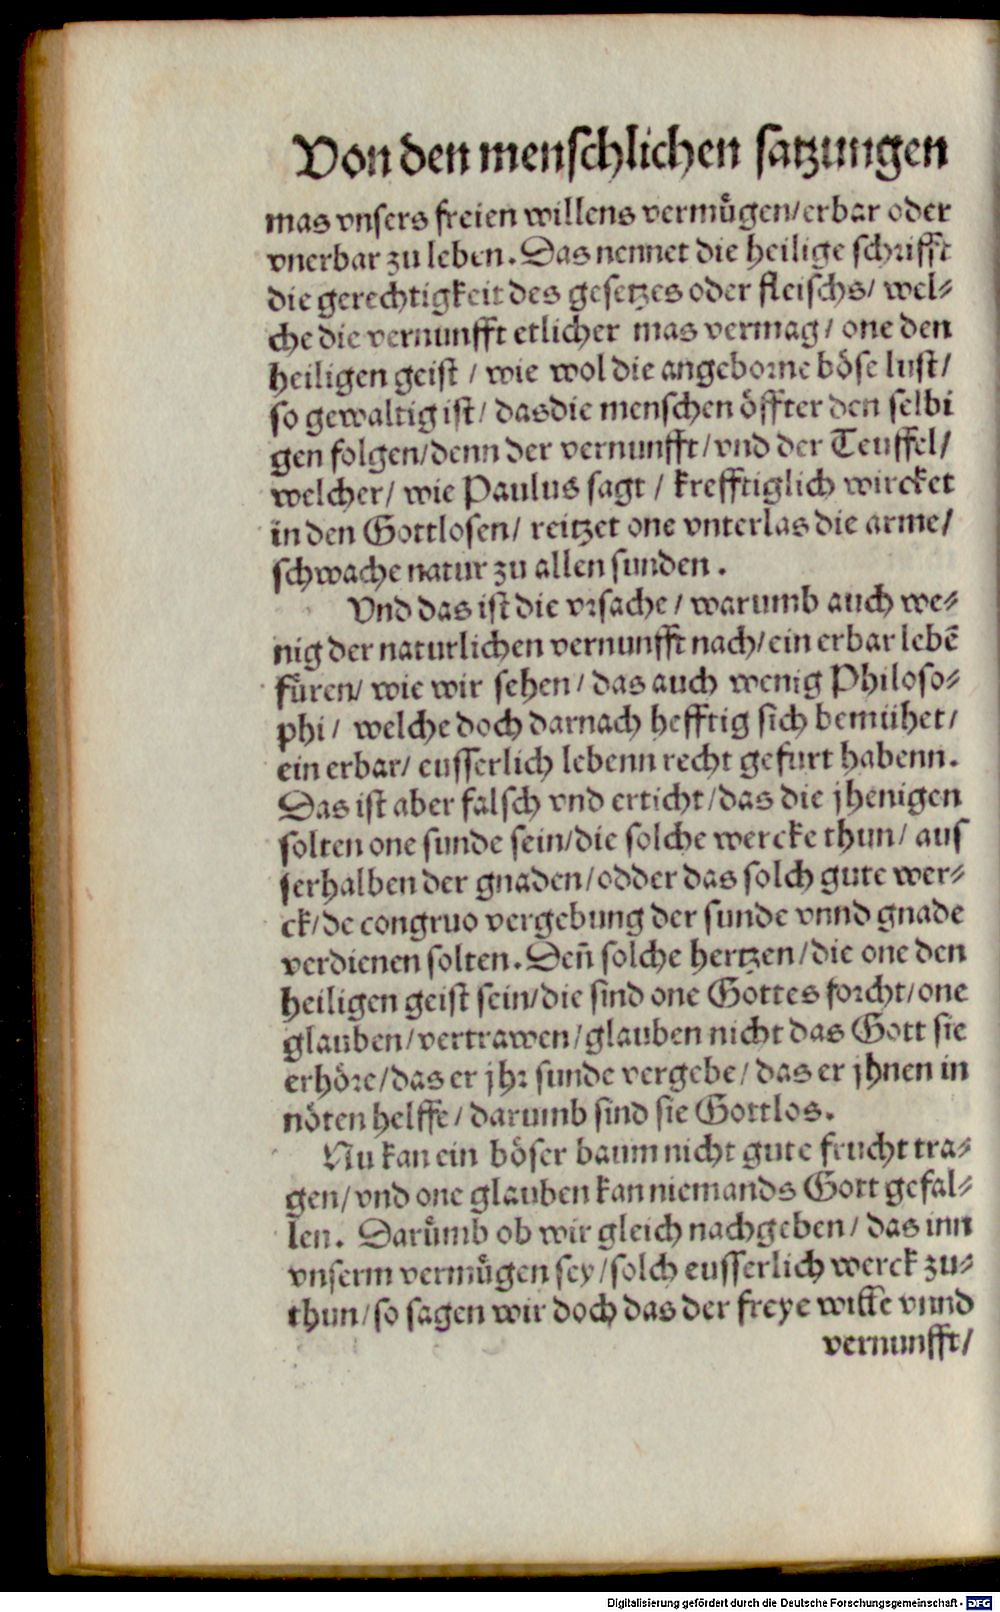 Von den menschlichen satzungen
mas vnsers freien willens vermuͤgen/erbar oder
vnerbar zu leben. Das nennet die heilige schrifft
die gerechtigkeit des gesetzes oder fleischs/ wel⸗
che die vernunfft etlicher mas vermag/ one den
heiligen geist / wie wol die angeborne böse lust/
so gewaltig ist/ das die menschen öffter den selbi
gen folgen/denn der vernunfft/vnd der Teuffel/
welcher/ wie Paulus sagt / krefftiglich wircket
in den Gottlosen/ reitzet one vnterlas die arme/
schwache natur zu allen sunden .
Vnd das ist die vrsache / warumb auch we⸗
nig der naturlichen vernunfft nach/ein erbar lebē
fuͤren/ wie wir sehen / das auch wenig Philoso⸗
phi / welche doch darnach hefftig sich bemühet/
ein erbar/ eusserlich lebenn recht gefurt habenn.
Das ist aber falsch vnd erticht/das die jhenigen
solten one sunde sein/die solche wercke thun/ aus
serhalben der gnaden/odder das solch gute wer⸗
ck/de congruo vergebung der sunde vnnd gnade
verdienen solten. Deñ solche hertzen/die one den
heiligen geist sein/die sind one Gottes forcht/one
glauben/vertrawen/glauben nicht das Gott sie
erhöre/das er jhr sunde vergebe/ das er jhnen in
nöten helffe/ darumb sind sie Gottlos.
Nu kan ein böser baum nicht gute frucht tra⸗
gen/vnd one glauben kan niemands Gott gefal⸗
len. Daruͤmb ob wir gleich nachgeben/ das inn
vnserm vermuͤgen sey/solch eusserlich werck zu⸗
thun/so sagen wir doch das der freye wille vnnd
vernunfft/
Digitalisierung gefördert durch die Deutsche Forschungsgemeinschaft - DFG